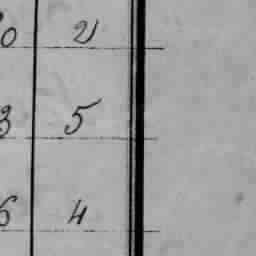 0 2
3 5
6 4